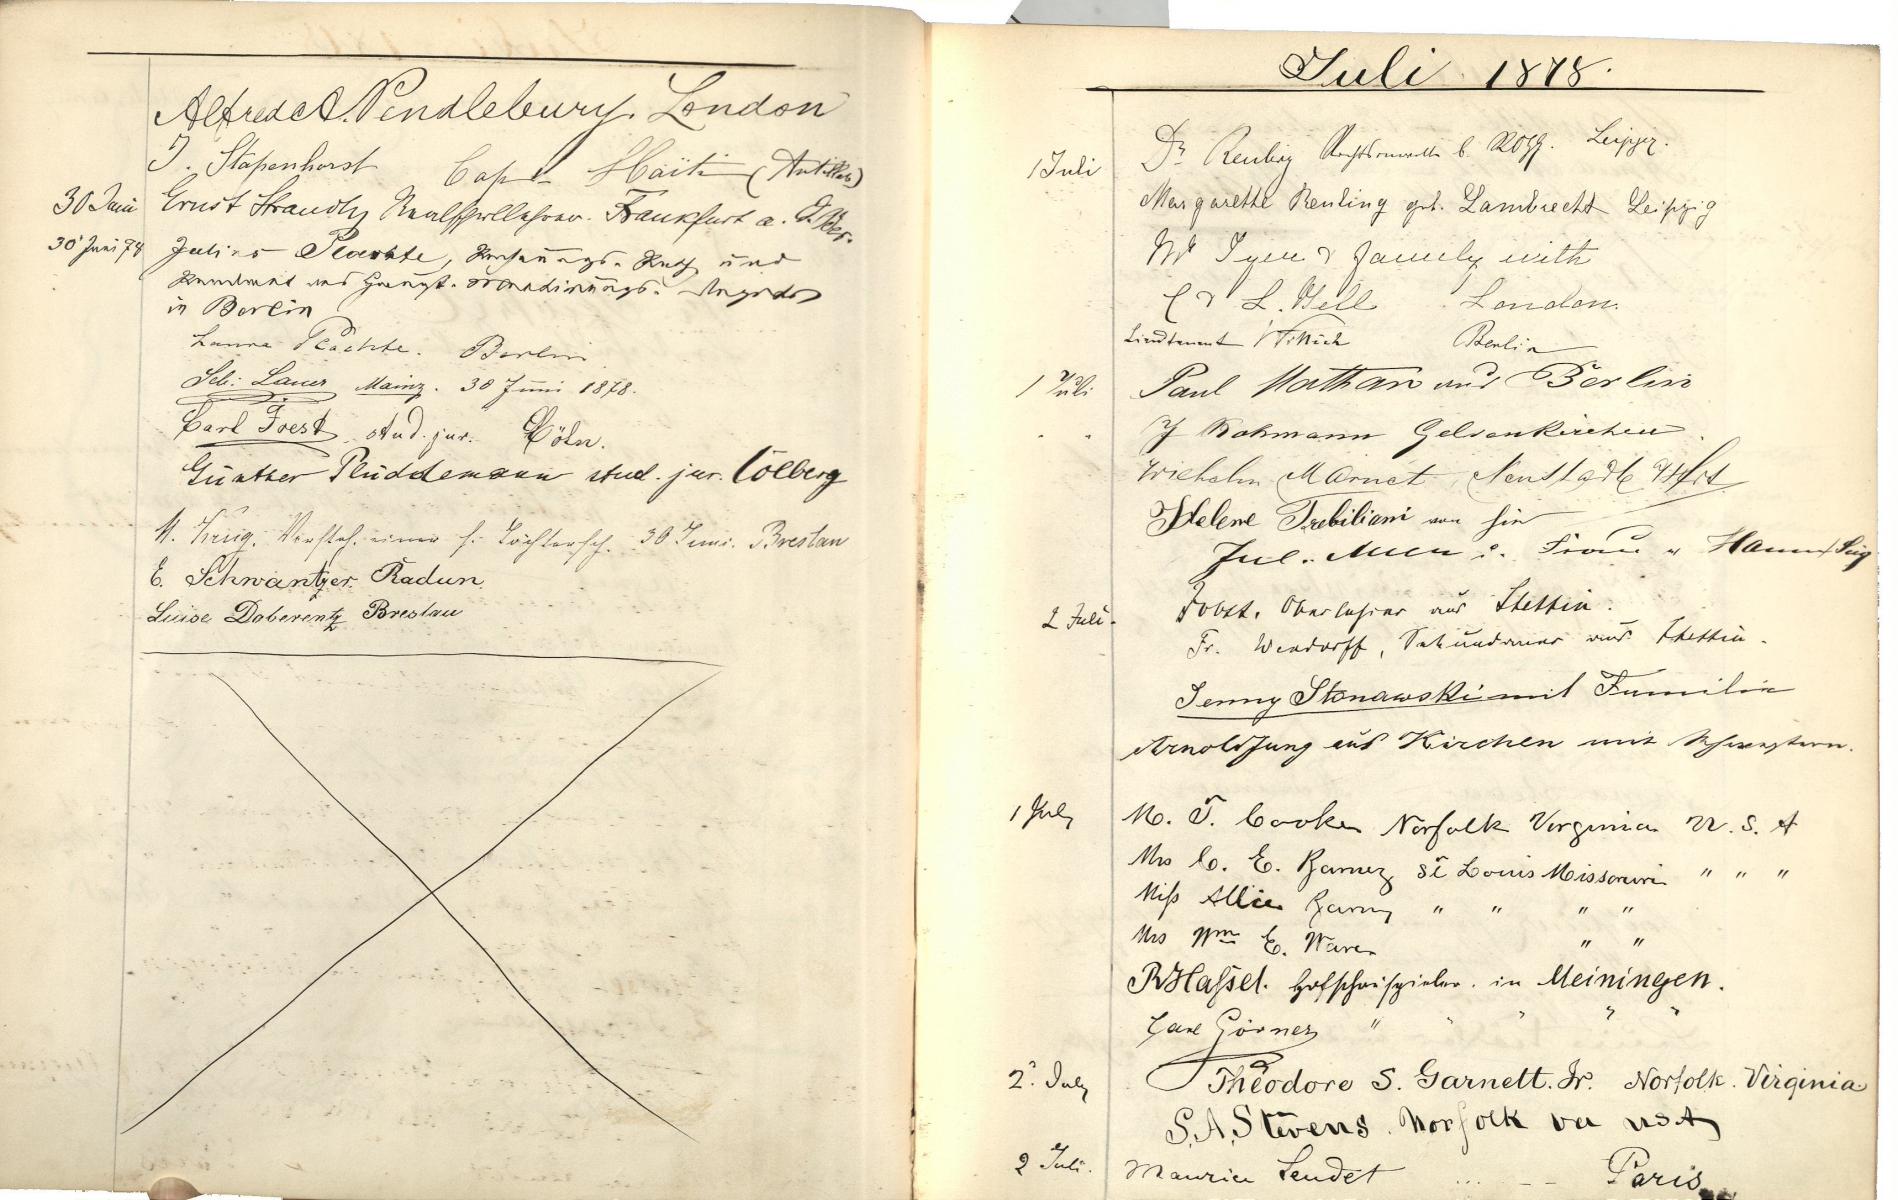 Alfred A. Pendlebury. London
J. Stapenhorst Cap Haïti (Antillen)
30 Juni Ernst Frankfurt a. Oder.
30 Juni 78 Julius Plachte, Rechnungs-Rath und
in Berlin
Plachte. Berlin
Seb: Lauer Mainz. 30 Juni 1878.
Carl Joest stud. jur. Cöln.
Günther Plüddemann stud. jur. Colberg
M. Krug. Vorsteh. einer h. Töchtersch. 30 Juni. Breslau
E. Schwantzer Radun
Luise Doberentz Breslau
Juli 1878.
1 Juli Dr. Renling Rechtsanwalt b. ROHG. Leipzig.
Margarethe Renling geb. Lambrecht Leipzig
Mr & family with
C & L. Gell London.
Lieutenant Wittich Berlin
1 Juli Paul Nathan aus Berlin
" " J Rohmann Gelsenkirchen.
Wilhelm Marnet, Neustadt
Helene Trebiliani von hier
Jul. u. Frau a Hannover
2 Juli. Jobst. Oberlehrer aus Stettin.
Fr. Wendorff, Sekundaner aus Stettin.
Jenny Stonawski mit Familie
Arnold Jung aus Kirchen mit Schwestern.
1 July M. T. Cooke Norfolk Virginia U. S. A
Mrs C. E. Barney St Louis Missouri " " "
Miss Allie Barney " " " "
Mrs Wm E. Ware " "
R Hassel. Hofschauspieler. in Meiningen.
Carl Görner " " " " "
2. July Theodore S. Garnett. Jr. Norfolk. Virginia
S. A. Stevens. Norfolk va USA
2 Juli. Maurice Leudet Paris